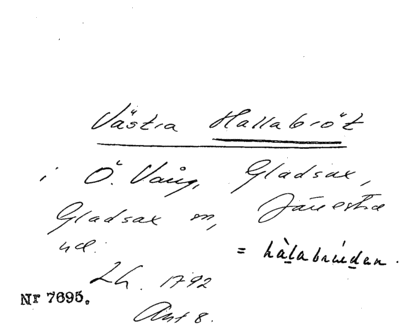 Västra Hallabröt
i Ö. Vång, Gladsax,
Gladsax sn, Järrestad
hd.
= hàlabrúdan.
Lh. 1792
Nr 7695.
Akt 8.